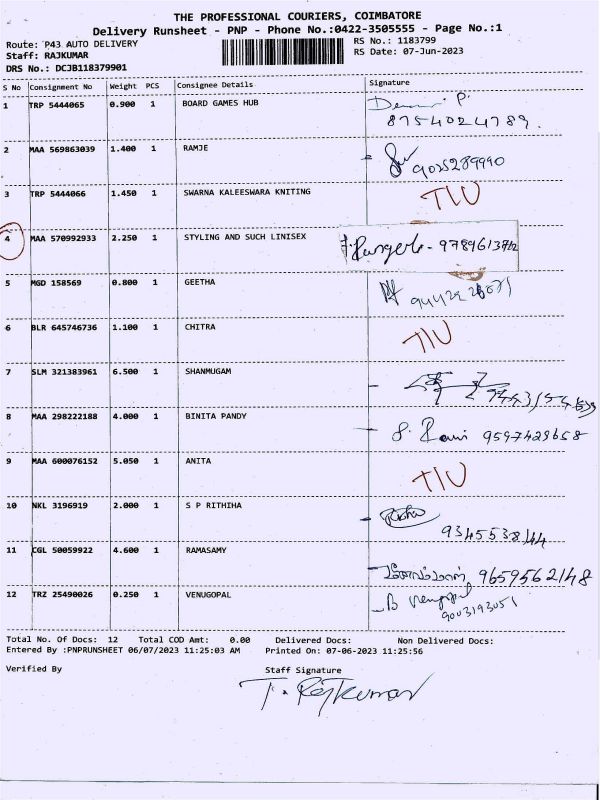 THE PROFESSIONAL COURIERS, COIMBATORE
Delivery Runsheet - PNP - Phone No.:0422-3505555 - Page No.:1
Route: P43 AUTO DELIVERY RS No.: 1183799
Staff: RAJKUMAR RS Date: 07-Jun-2023
DRS No.: DCJB118379901
S No Consignment No Weight PCS Consignee Details Signature
1 TRP 5444065 0.900 1 BOARD GAMES HUB
8754024789.
2 MAA 569863039 1.400 1 RAMJE
9025289990
3 TRP 5444066 1.450 1 SWARNA KALEESWARA KNITING T/U
4 MAA 570992933 2.250 1 STYLING AND SUCH LINISEX
5 MGD 158569 0.800 1 GEETHA
6 BLR 645746736 1.100 1 CHITRA T/U
7 SLM 321383961 6.500 1 SHANMUGAM
8 MAA 298222188 4.000 1 BINITA PANDY
S. Rani 9597429658
9 MAA 600076152 5.050 1 ANITA T/U
10 NKL 3196919 2.000 1 S P RITHIHA
9345538144
11 CGL 50059922 4.600 1 RAMASAMY
9659562148
12 TRZ 25490026 0.250 1 VENUGOPAL
B Venugopal
9003193051
Total No. Of Docs: 12 Total COD Amt: 0.00 Delivered Docs: Non Delivered Docs:
Entered By :PNPRUNSHEET 06/07/2023 11:25:03 AM Printed On: 07-06-2023 11:25:56
Verified By Staff Signature
T. Rajkumar